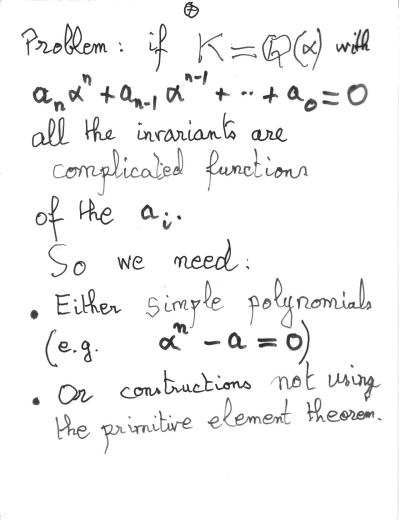 ⑦
Problem: if K = Q(α) with
aₙαⁿ + aₙ₋₁αⁿ⁻¹ + ·· + a₀ = 0
all the invariants are
complicated functions
of the aᵢ.
So we need:
• Either simple polynomials
(e.g. αⁿ - a = 0)
• Or constructions not using
the primitive element theorem.